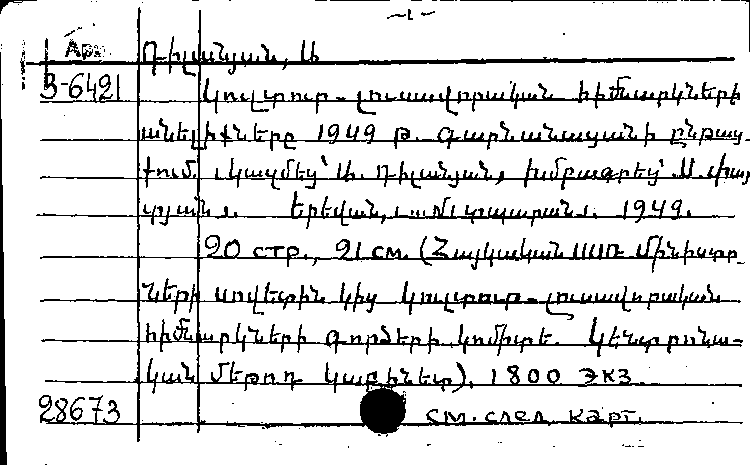 -1-
Арм
3-6421 Դիլանյան, Ա
Կուլտուր-լուսավորական հիմնարկների
անելիքները 1949 թ. գարնանացանի ընթաց-
քում. Կազմեց՝ Ա. Դիլանյան, խմբագրեց՝
Երեվան, 1949.
20 стр., 21 см. (Հայկական ՍՍՌ Մինիստր-
ների սովետին կից կուլտուր-լուսավորական
հիմնարկների գործերի կոմիտե. Կենտրոնա-
կան մեթոդ կաբինետ). 1800 экз.
28673 см. след. карт.